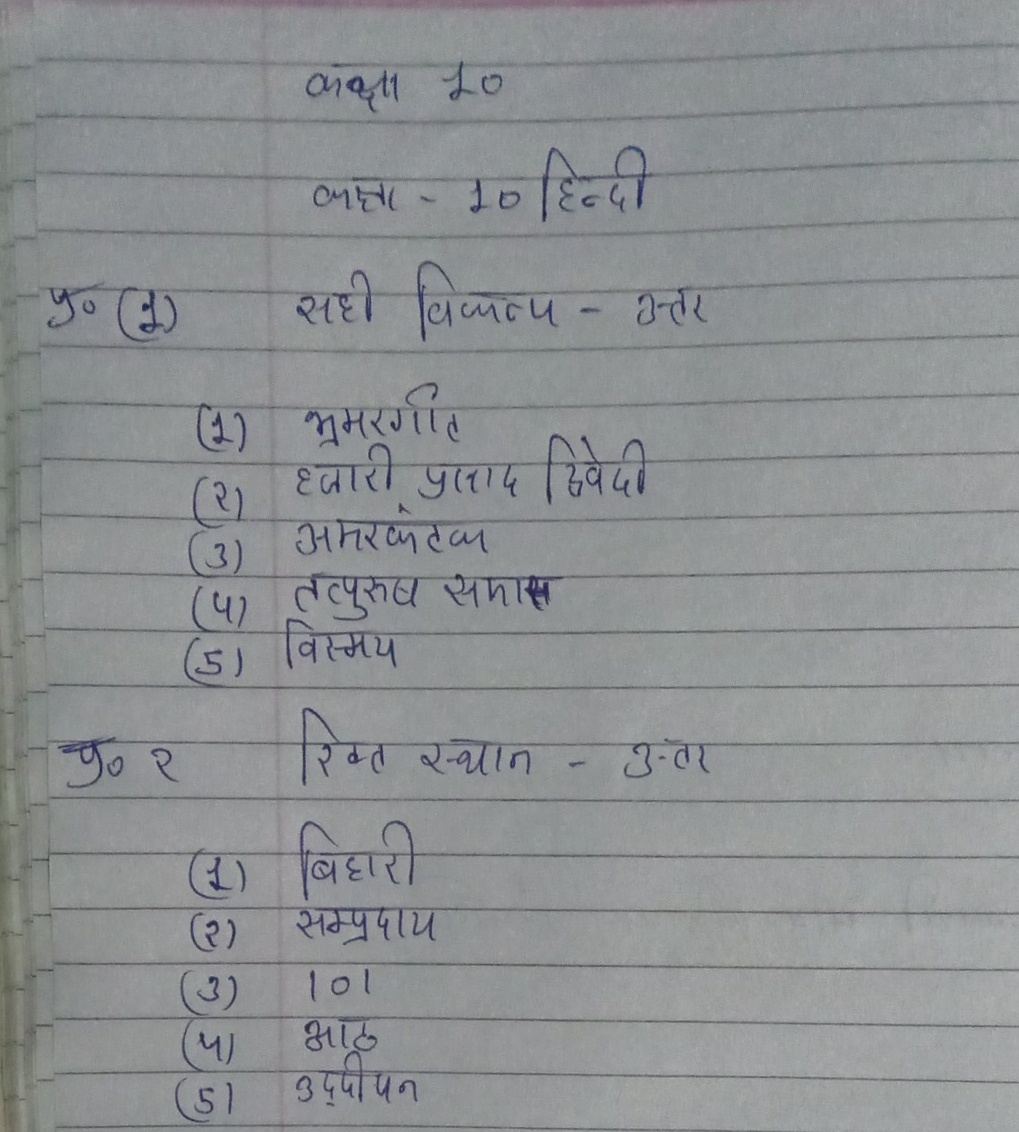 कक्षा 10
कक्षा - 10 हिन्दी
प्र० (1) सही विकल्प - उत्तर
(1) भ्रमरगीत
(2) हजारी प्रसाद द्विवेदी
(3) अमरकंटक
(4) तत्पुरुष समास
(5) विस्मय
प्र० २ रिक्त स्थान - उत्तर
(1) बिहारी
(२) सम्प्रदाय
(3) 101
(4) आठ
(5) उद्दीपन